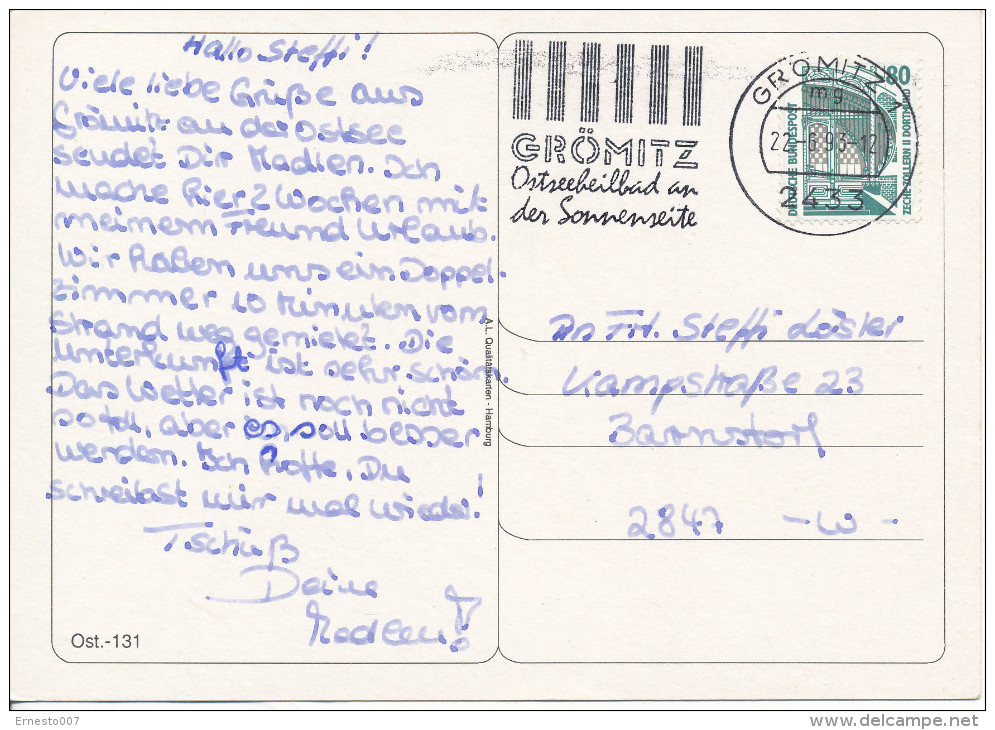 Hallo Steffi!
Viele liebe Grüße aus
Grömitz an der Ostsee
sendet Dir Madlen. Ich
mache hier 2 Wochen mit
meinem Freund Urlaub.
Wir haben uns ein Doppel-
zimmer 10 Minuten vom
Strand weg gemietet. Die
Unterkunft ist sehr schön.
Das Wetter ist noch nicht
so toll, aber es soll besser
werden. Ich hoffe, Du
schreibst mir mal wieder!
Tschüß
Deine
Madlen!
Ost.-131
A.L. Qualitätskarten - Hamburg
GRÖMITZ
Ostseeheilbad an
der Sonnenseite
GRÖMITZ 1
mg
22.-6.93-12
2433
80
DEUTSCHE BUNDESPOST
ZECHE ZOLLERN II DORTMUND
An Frl. Steffi
Kampstraße 23
Barnstorf
2847 -W-
Ernesto007
delcampe.net